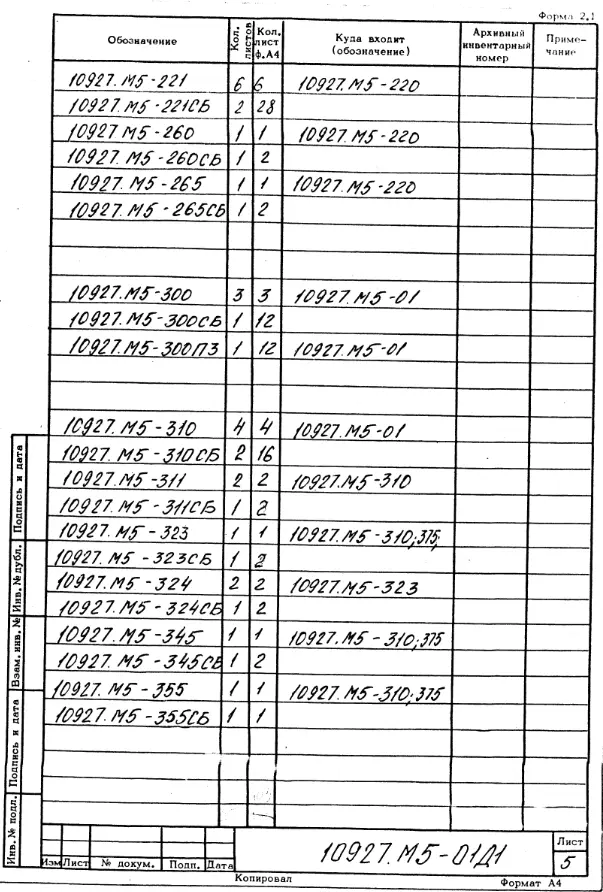 Форма 2.1
Обозначение Кол. листов Кол. лист ф.А4 Куда входит (обозначение) Архивный инвентарный номер Приме- чание
10927.М5-221 6 6 10927.М5-220
10927.М5-221СБ 2 28
10927 М5-260 1 1 10927.М5-220
10927.М5-260СБ 1 2
10927.М5-265 1 1 10927.М5-220
10927.М5-265СБ 1 2
10927.М5-300 3 3 10927.М5-01
10927.М5-300СБ 1 12
10927.М5-300ПЗ 1 12 10927.М5-01
10927.М5-310 4 4 10927.М5-01
10927.М5-310СБ 2 16
10927.М5-311 2 2 10927.М5-310
10927.М5-311СБ 1 2
10927.М5-323 1 1 10927.М5-310;375;
10927.М5-323СБ 1 2
10927.М5-324 2 2 10927.М5-323
10927.М5-324СБ 1 2
10927.М5-345 1 1 10927.М5-310;375
10927.М5-345СБ 1 2
10927.М5-355 1 1 10927.М5-310;375
10927.М5-355СБ 1 1
Подпись и дата
Инв.№ дубл.
Взам. инв. №
Подпись и дата
Инв.№ подл.
Изм Лист № докум. Подп. Дата
10927.М5-01Д1
Лист
5
Копировал Формат А4